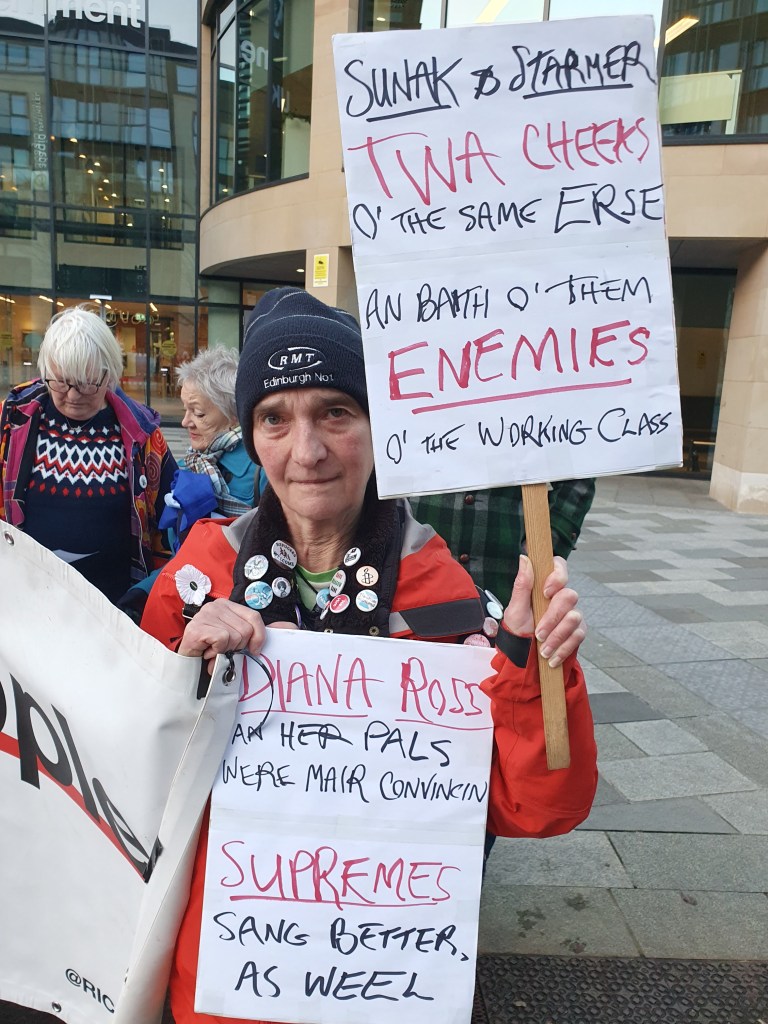 SUNAK & STARMER
TWA CHEEKS
O' THE SAME ERSE
AN BAITH O' THEM
ENEMIES
O' THE WORKING CLASS
RMT
Edinburgh No1
DIANA ROSS
AN HER PALS
WERE MAIR CONVINCIN
SUPREMES
SANG BETTER,
AS WEEL
ople
@RIC